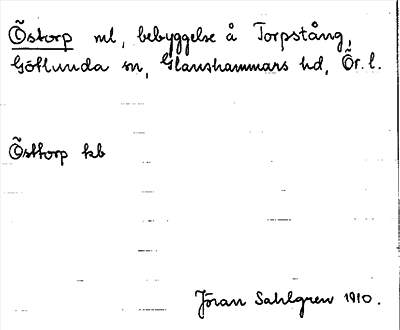 Östorp ml, bebyggelse å Torpstång,
Götlunda sn, Glanshammars hd, Ör. l.
Östtorp kb
Jöran Sahlgren 1910.